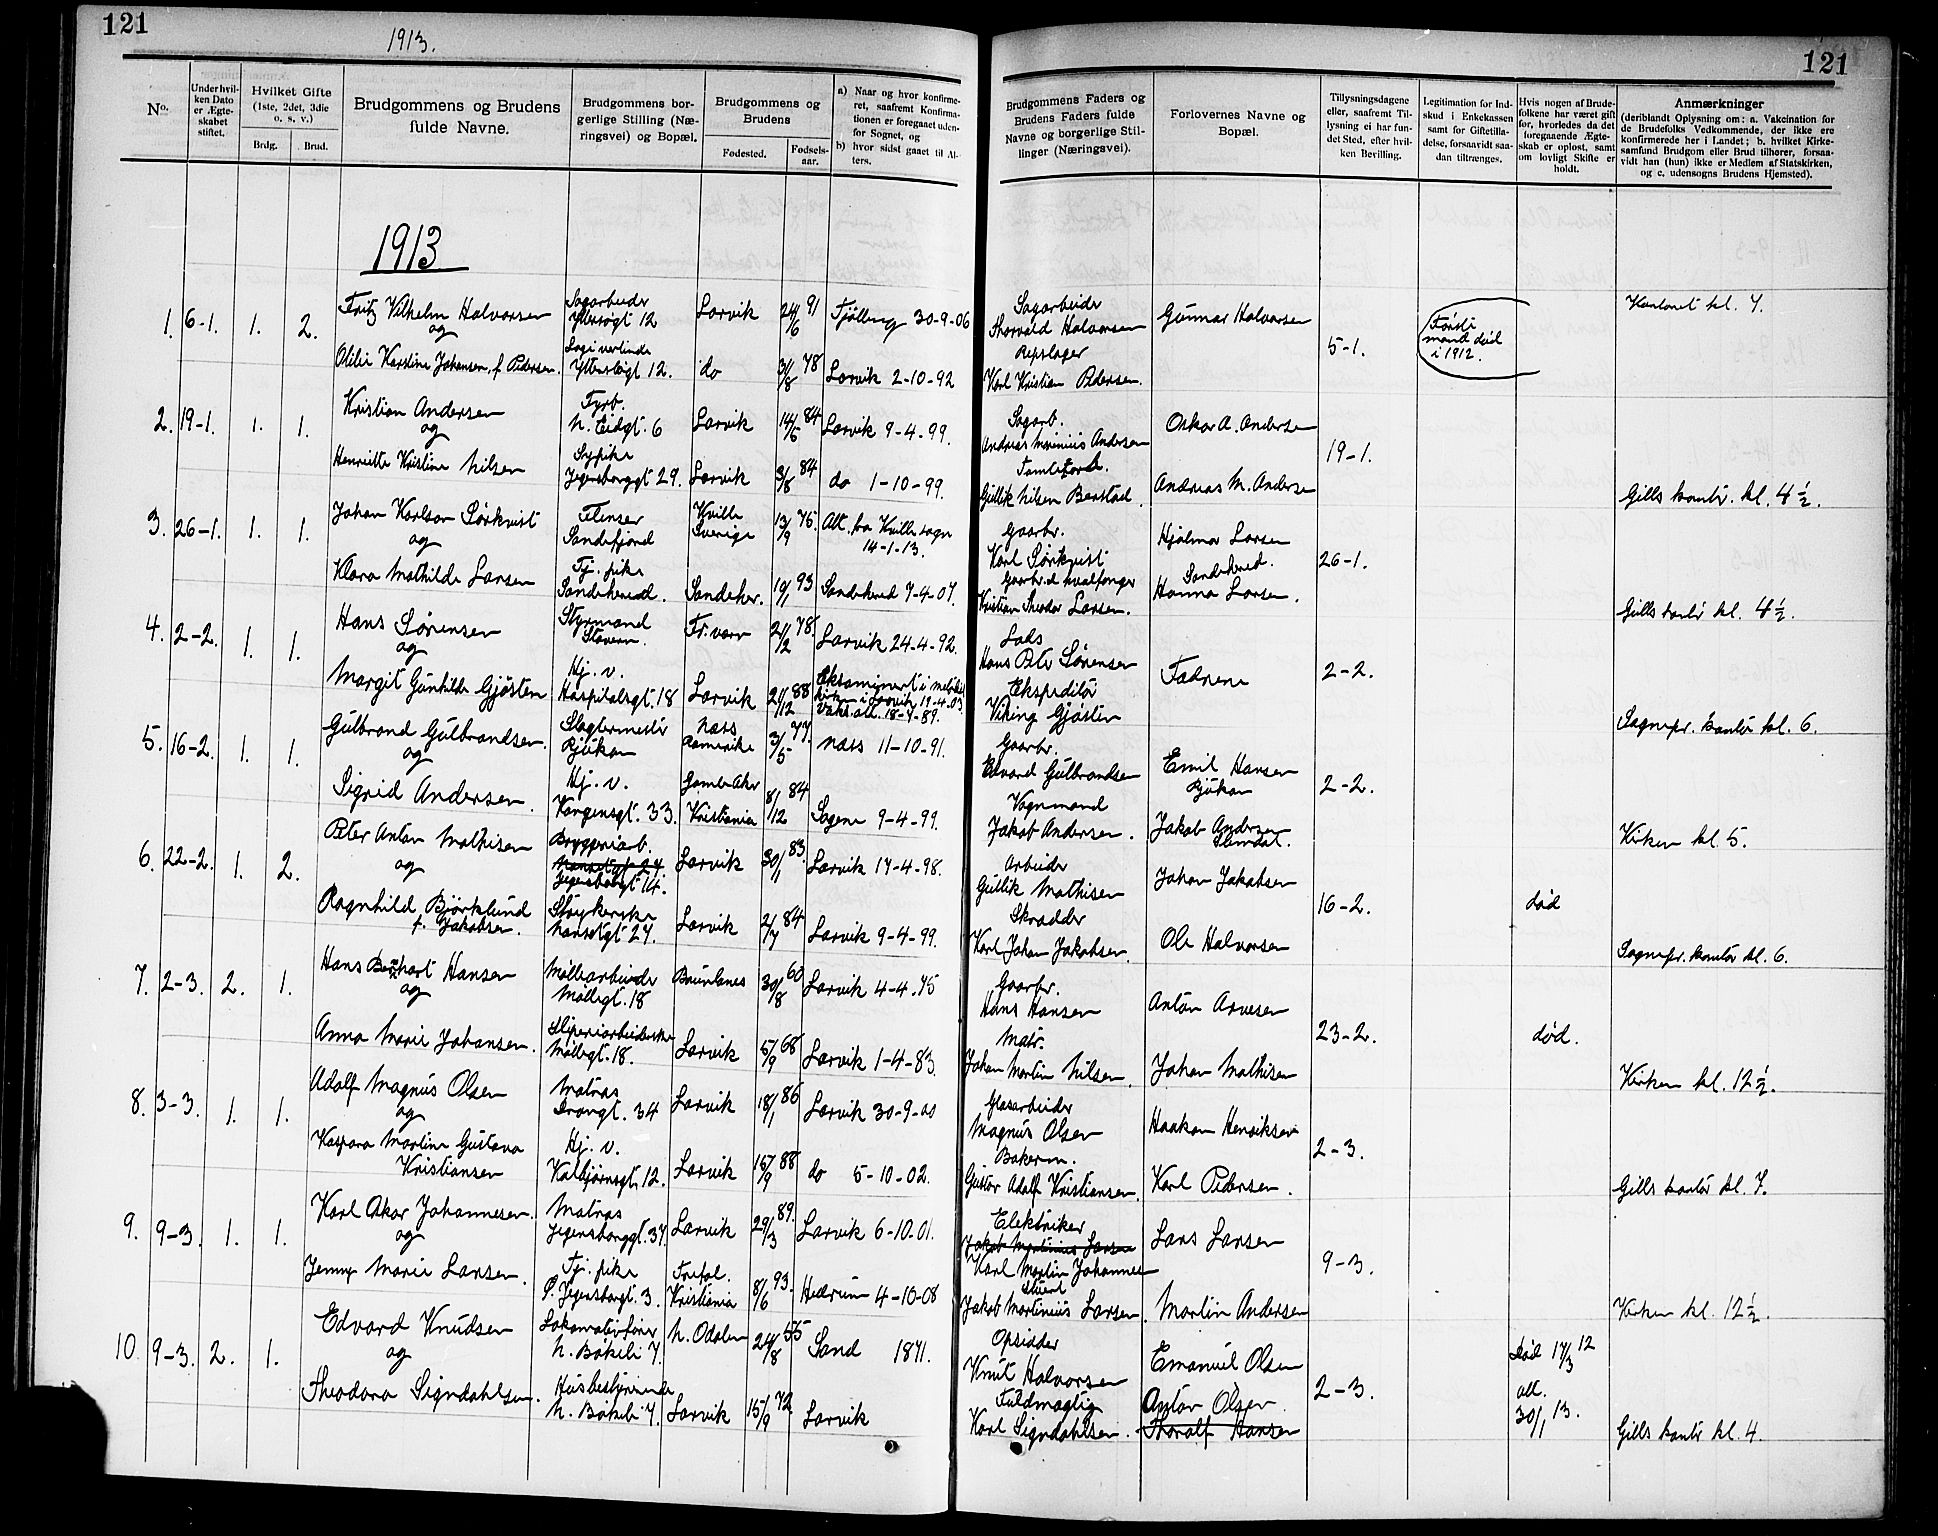 121
1913.
No.
Under hvilken Dato er Ægteskabet stiftet.
Hvilket Gifte (1ste, 2det, 3die o. s. v.)
Brdg.
Brud.
Brudgommens og Brudens fulde Navne.
Brudgommens borgerlige Stilling (Næringsvei) og Bopæl.
Brudgommens og Brudens
Fødested.
Fødselsaar.
a) Naar og hvor konfirmeret, saafremt Konfirmationen er foregaaet udenfor Sognet, og
b) hvor sidst gaaet til Alters.
121
Brudgommens Faders og Brudens Faders fulde Navne og borgerlige Stillinger (Næringsvei).
Forlovernes Navne og Bopæl.
Tillysningsdagene eller, saafremt Tillysning ei har fundet Sted, efter hvilken Bevilling.
Legitimation for Indskud i Enkekassen samt for Giftetilladelse, forsaavidt saadan tiltrænges.
Hvis nogen af Brudefolkene har været gift før, hvorledes da det foregaaende Ægteskab er opløst, samt om lovligt Skifte er holdt.
Anmærkninger
(deriblandt Oplysning om: a. Vakcination for de Brudefolks Vedkommende, der ikke ere konfirmerede her i Landet; b. hvilket Kirkesamfund Brudgom eller Brud tilhører, forsaavidt han (hun) ikke er Medlem af Statskirken, og c. udensogns Brudens Hjemsted).
1913
1. 6-1. 1. 2. Fritz Vilhelm Halvorsen Sagarbeider Yttersøgt 12 Larvik 24/6 91 Fjølling 30-9-06 Sagarbeider Thorvald Halvorsen Gunnar Halvorsen 5-1. Første mand død i 1912. Kontoret kl. 7.
og
Karoline Johansen, f. Pedersen Yttersøgt 12. do 31/8 78 Larvik 2-10-92 Repslager Karl Kristian Pedersen.
2. 19-1. 1. 1. Kristian Andersen Fyrb. N. Eidgt. 6 Larvik 14/5 84 Larvik 9-4-99. Sagarb. Andreas Marinius Andersen Oskar A. Andersen 19-1.
og
Henriette Kristine Nilsen Sypike Jegersborggt 29. Larvik 3/8 84 do 1-10-99. Gullik Nilsen Berstad. Andreas M. Andersen Gills kontor. kl. 4 1/2.
3. 26-1. 1. 1. Johan Karlson Sørkvist Flenser Sandefjord Kville Sverige 13/9 75. Att. fra Kville sogn 14-1-13. Gaarbr. Karl Sørkvist Hjalmar Larsen Sandehered. 26-1.
og
Klara Mathilde Larsen Tj. pike Sandehered. Sandeher. 19/1 93 Sandehered 7-4-07. Gaarbr. & hvalfanger Kristian Theodor Larsen. Hanna Larsen. Gills kontor kl. 4 1/2.
4. 2-2. 1. 1. Hans Sørensen Styrmand Stavern. Fr.værn 21/2 78. Larvik 24-4-92. Lods Hans Peter Sørensen Fædrene 2-2.
og
Margit Gunhilde Gjøsten Hj. v. Hospitalsgt. 18 Larvik 21/12 88 Vaks.att. 18-7-89. Ekspeditør Viking Gjøsten Sognepr. kontor kl. 6.
5. 16-2. 1. 1. Gulbrand Gulbrandsen. Slagtermester Rjukan Næss Romerike 3/5 77. Næss 11-10-91. Gaarbr. Edvard Gulbrandsen Emil Hansen Rjukan 2-2.
og
Sigrid Andersen. Hj. v. Kongensgt. 33. Gamle Aker Kristiania 8/12 84 Sagene 9-4-99. Vognmand Jakob Andersen. Jakob Andersen Kirken kl. 5.
6. 22-2. 1. 2. Peter Anton Mathisen Bryggeriarb. Jegersborggt 14. Larvik 30/1 83. Larvik 17-4-98. Arbeider Gullik Mathisen Johan Jakobsen 16-2. død
og
Ragnhild Bjørklund f. Jakobsen. Strykerske Nansetgt 27. Larvik 2/7 84 Larvik 9-4-99. Skrædder Karl Johan Jakobsen. Ole Halvorsen Sognepr. kontor kl. 6.
7. 2-3. 2. 1. Hans Berhart Hansen Møllearbeider Møllegt. 18 Brunlanes 30/8 60 Larvik 4-4-75 Gaarbr. Hans Hansen Anton Arvesen 23-2. død.
og
Anna Marie Johansen. Sliperiarbeiderske Møllegt. 18. Larvik 5/9 68 Larvik 1-4-83. Matr. Johan Martin Nilsen. Johan Mathisen Kirken kl. 12 1/2.
8. 3-3. 1. 1. Adolf Magnus Olsen Matros Dronggt. 34 Larvik 18/1 86 Larvik 30-9-00 Glasarbeider Magnus Olsen Haakon Henriksen 2-3.
og
Kaspara Martine Gustava Kristiansen Hj. v. Kalbjørnsgt. 12. Larvik 15/9 88 do 5-10-02. Bakerm. Gustav Adolf Kristiansen. Karl Pedersen. Gills kontor kl. 7.
9. 9-3. 1. 1. Karl Oskar Johannesen. Matros Jegersborggt. 37. Larvik 29/3 89. Larvik 6-10-01. Elektriker Jakob Martinius Larsen Karl Martin Johannesen Lars Larsen 9-3.
og
Jenny Marie Larsen. Tj. pike Ø. Jegersborgt. 3. Trefol. Kristiania 8/6 93. Hedrum 4-10-08 Stuert Jakob Martinius Larsen. Martin Andersen Kirken kl. 12 1/2.
10. 9-3. 2. 1. Edvard Knudsen Lokomotivfører N. Bøkeli 7. N. Odalen 24/8 55 Sand 1871. Opsidder Knut Halvorsen Emanuel Olsen 2-3. død 17/3 12 att. 30/1 13.
og
Theodora Signdahlsen. Husbestyrerinde N. Bøkeli 7. Larvik 15/9 72. Larvik Fuldmægtig Karl Signdahlsen. Anton Olsen. Thoralf Hansen Gills kontor kl. 4.